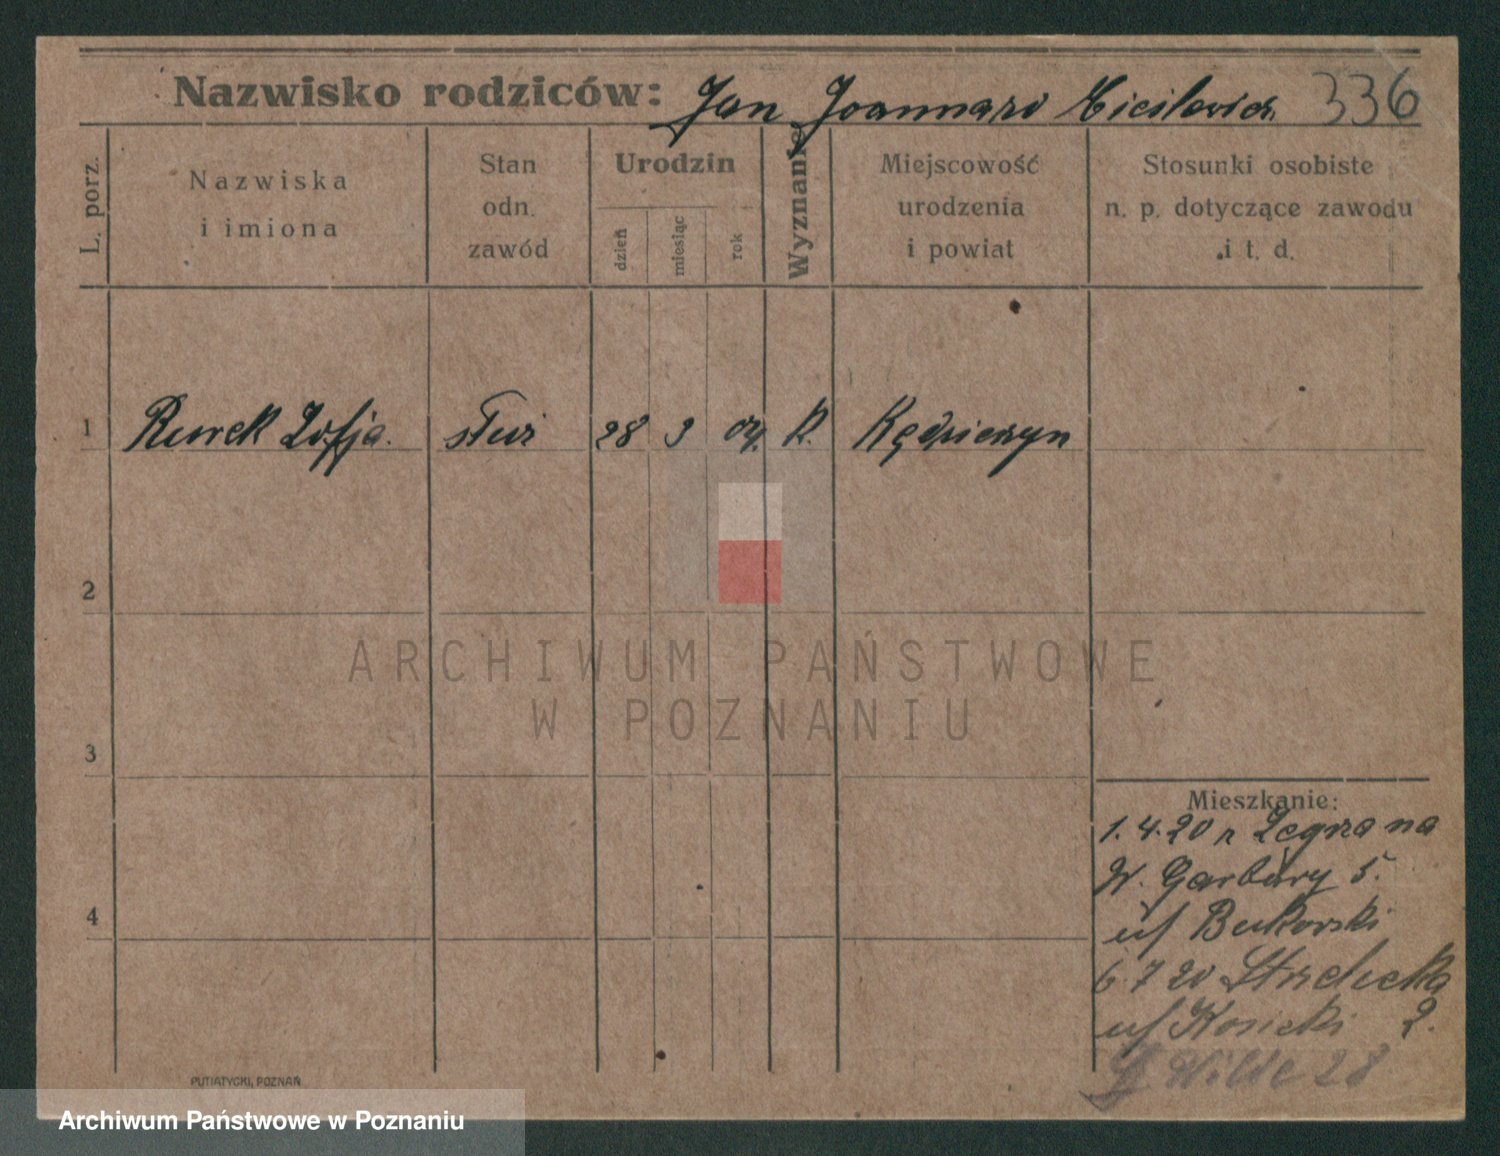 Nazwisko rodziców: Jan Joanna 336
L. porz.
Nazwiska
i imiona
Stan
odn.
zawód
Urodzin
dzień
miesiąc
rok
Wyznanie
Miejscowość
urodzenia
i powiat
Stosunki osobiste
n. p. dotyczące zawodu
i t. d.
1 Rurek Zofja. służ 28 3 04. k. Kędzierzyn
2
3
4
ARCHIWUM PAŃSTWOWE
W POZNANIU
Mieszkanie:
1.4.20 z Zegrza na
W. Garbary 5.
u/ Bukowski
6.7 20 Strzelecka
u/ Kosicki 2.
Wilde 28
PUTIATYCKI, POZNAŃ
Archiwum Państwowe w Poznaniu